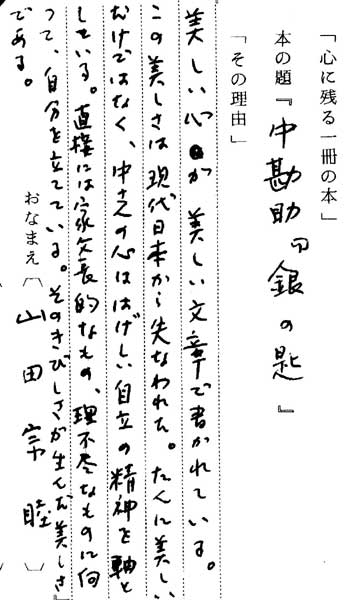 「心に残る一冊の本」
本の題『中勘助の銀の匙』
「その理由」
美しい心が美しい文章で書かれている。
この美しさは現代日本から失なわれた。たんに美しい
だけではなく、中さんの心ははげしい自立の精神を軸と
している。直接には家父長的なもの、理不尽なものに向
って、自分を立てている。そのきびしさが生んだ美しさ
である。
おなまえ〔山田宗睦〕